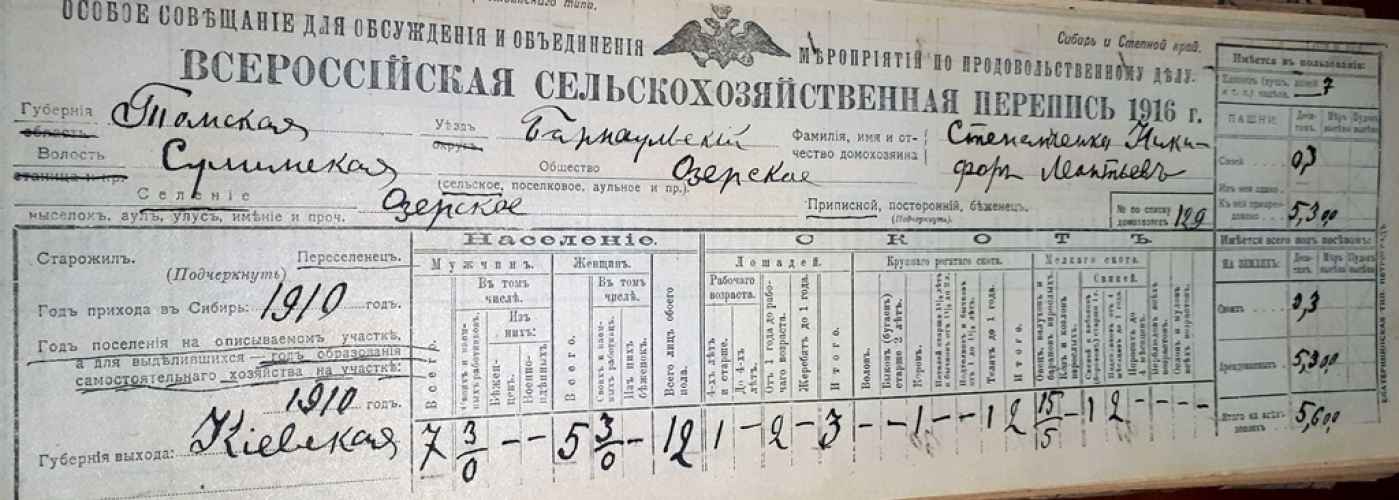 ОСОБОЕ СОВѢЩАНІЕ ДЛЯ ОБСУЖДЕНІЯ И ОБЪЕДИНЕНІЯ
МѢРОПРІЯТІЙ ПО ПРОДОВОЛЬСТВЕННОМУ ДѢЛУ.
Сибирь и Степной край.
ВСЕРОССІЙСКАЯ СЕЛЬСКОХОЗЯЙСТВЕННАЯ ПЕРЕПИСЬ 1916 г.
Губернія Томская Уѣздъ Барнаульскій Фамилія, имя и от- Степанченко Ники-
область округъ чество домохозяина форъ Леонтьевъ
Волость Сумимская Общество Озерское
станица и пр. (сельское, поселковое, аульное и пр.).
Селеніе Озерское Приписной, посторонній, бѣженецъ.
выселокъ, аулъ, улусъ, имѣніе и проч. (Подчеркнуть).
№ по списку 129
домохозяевъ
Старожилъ. Переселенецъ.
(Подчеркнуть)
Годъ прихода въ Сибирь: 1910 годъ.
Годъ поселенія на описываемомъ участкѣ,
а для выдѣлившихся – годъ образованія
самостоятельнаго хозяйства на участкѣ:
1910 годъ.
Губернія выхода: Кіевская
Населеніе.
Мужчинъ. Женщинъ.
Въ томъ числѣ. Въ томъ числѣ.
Изъ нихъ:
Всего.
Бѣжен-цевъ.
Военно-плѣнныхъ.
Всего.
Изъ нихъ бѣженокъ.
Всего лицъ обоего пола.
7 3/0 – – 5 3/0 – 12
СКОТЪ
Лошадей. Крупнаго рогатаго скота. Мелкаго скота.
Рабочаго возраста.
4-хъ лѣтъ и старше.
До 4-хъ лѣтъ.
Отъ 1 года до рабо-чаго возраста.
Жеребятъ до 1 года.
Итого.
Воловъ.
Быковъ (бугаевъ) старше 2 лѣтъ.
Коровъ.
Телятъ до 1 года.
Итого.
Свиней.
1 – 2 – 3 – – 1 – – 1 2 15/5 – 1 2 – – – –
Имѣется въ пользованіи:
7
ПАШНИ: Деся-тинъ.
Своей 0,3
Изъ нея сдано
Къ ней приарен-довано 5,300
Имѣется всего подъ посѣвомъ:
НА ЗЕМЛЯХЪ: Деся-тинъ.
Своихъ 0,3
Арендованныхъ 5,300
Итого на всѣхъ земляхъ 5,60,0